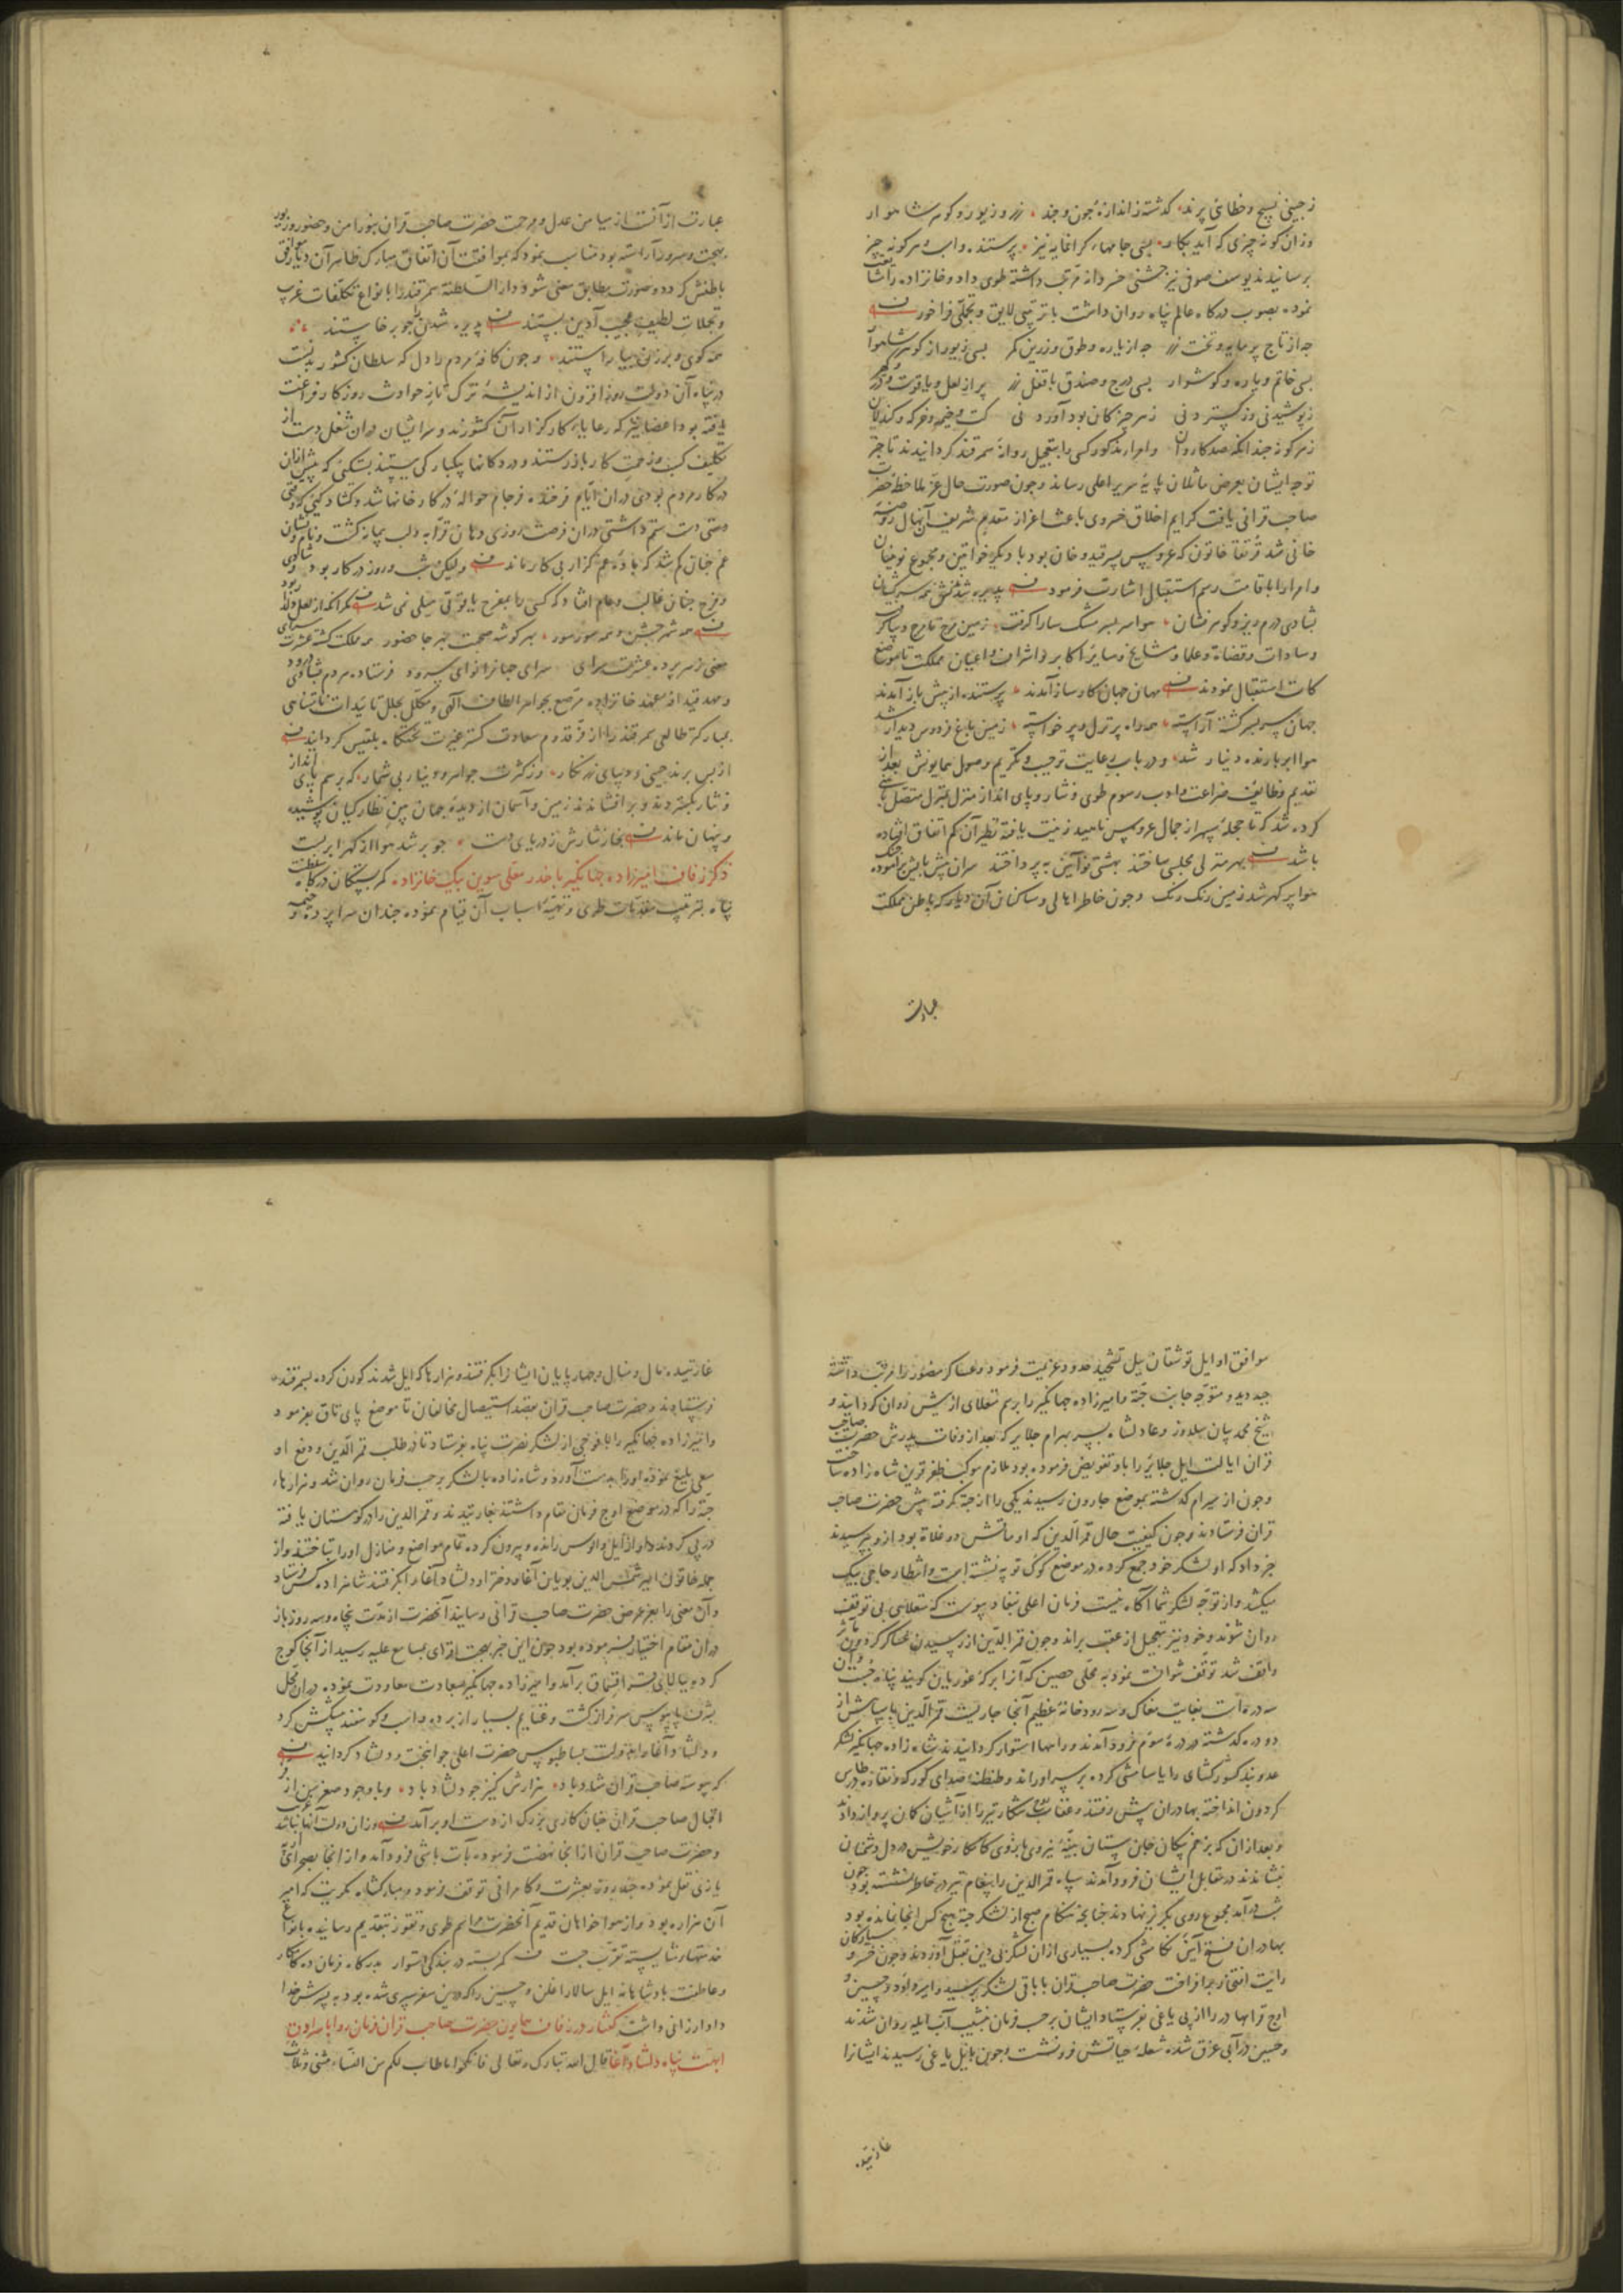 ز چینی نسیج و خطائی پرند کذشته ز اندازهٔ چون و چند زر و زیور و کوهر شاهوار
وزان کونه چیزی که آید بکار بسی جامهاء کرانمایه نیز پرستنده و اسب و هر کونه چیز
برسانیدند یوسف صوفی نیز جشنی خسروانه مرتب داشته طوی داد و خانزاده را
نموده بصوب درکاه عالم پناه روان داشت با ترتیبی لایق و تجملی فراخور
چه از تاج پرمایه و تخت زر چه از یاره و طوق و زرین کمر بسی زیور از کوهر شاهوار
بسی خاتم و یاره و کوشوار بسی درج و صندق با قفل زر پر از لعل و یاقوت و در و کهر
ز پوشیدنی وز کستردنی ز هر چیز کان بود آوردنی
ز هر کونه چندانکه صد کاروان و امراء مذکور کسی را بتعجیل روانهٔ سمرقند کردانیدند تا خبر
توجه ایشان بعرض ماثلان پایهٔ سریر اعلی رساند و چون صورت حال عز ملاحظه حضرت
صاحب قرانی یافت کرایم اخلاق خسروی باعث اعزاز مقدم شریف آن نهال روضهٔ
خانی شد قتلغ خاتون که عروس پسر قیدو خان بود با دیکر خواتین و مجموع نوینان
و امرا را باقامت رسم استقبال اشارت فرمود پذیره شدندش همه سرکشان
بشادی درم ریز و کوهر فشان هوا سر بسر مشک سارا کرفت زمین
و سادات و قضاة و علما و مشایخ و سایر اکابر و اشراف و اعیان مملکت تا موضع
کات استقبال نمودند مهان جهان کارساز آمدند پرستنده از پیش باز آمدند
جهان سر بسر کشته آراسته همه راه پر نزل و پر خواسته زمین باغ فردوس دیدار شد
هوا ابر بارنده دینار شد و در باب رعایت ترحیب و تکریم وصول همایونش بعد از
تقدیم وظایف ضراعت و ادب رسوم طوی و نثار و پای انداز منزل بمنزل متصل
کرده شد که تا حجلهٔ سپهر از جمال عروس ناهید زینت یافته نظیر آن کم اتفاق افتاده
باشد بهر منزلی مجلسی ساختند بهشتی نو آیین بپرداختند
هوا پر کهر شد زمین رنک رنک و چون خاطر اهالی و ساکنان آن دیار که باطن مملکت
عبارت
عبارت از آنست از میامن عدل و مرحمت حضرت صاحب قران بنور امن و حضور و زیور
بهجت و سرور آراسته بود مناسب نمود که بموافقت آن اتفاق مبارک ظاهر آن دیار موافق
باطنش کردد و صورت مطابق معنی شود دار السلطنة سمرقند را بانواع تکلفات غریب
و تجملات لطیف عجیب آذین بستند پذیره شدن را چو برخاستند
همه کوی و برزن بیاراستند و چون کافهٔ مردم را دل که سلطان کشور بدنست
در پناه آن دولت روز افزون از اندیشهٔ ترک تاز حوادث روزکار فراغت
یافته بود اعضا نیز که رعایاء کارکزار آن کشورند و مرایشان دران شغل دست از
تکلیف کسب و زحمت کار باز داشتند و در دکانها یکبارکی ببستند
در کار مردم بودی دران ایام فرخندهٔ فرجام حوالهٔ در کارخانها شد
غم چنان کم شد که بادهٔ غم کزار بی کار ماند ولیکن شب و روز در کار بود
و فرح چنان غالب و عام افتاد که کسی را بمفرح یاقوتی میلی نمی شد
همه شهر جشن و همه سور سور بهر کوشه صحبت بهر جا حضور همه ملکت کشته عشرت سرای
مغنی ز هر پرده عشرت سرای
و مهد قیدافه عهد خانزاده مرصع بجواهر الطاف الهی و مکلل بجلل تائیدات نامتناهی
بمبارکتر طالعی سمرقند را از فر قدوم سعادت کستر غیرت تختکاه بلقیس کردانید
از بس پرند چینی و دیبای زر نکار وز کثرت جواهر و دینار بی شمار که برسم پای انداز
و نثار بکستردند و برافشاندند زمین و آسمان از دیدهٔ جهان بین نظارکیان پوشیده
و پنهان ماند بخار نثارش ز دریای دست چو بر شد هوا از کهر ابر بست
ذکر زفاف امیرزاده جهانکیر با خدر معلی سوین بیک خانزاده کمر بستکان درکاه سلطنت
پناه بترتیب مقدمات طوی و تهیهٔ اسباب آن قیام نموده چندان سراپرده و خیمه
موافق اوایل توشقان ییل تشحیذ حدود عزیمت فرموده و عساکر منصور را مرتب داشته
جیدید و متوجه جانب جته و امیرزاده جهانکیر را برسم منغلای از پیش روان کردانید و
شیخ محمد بیان سلدوز و عادلشاه پسر بهرام جلایر که بعد از وفات پدرش حضرت صاحب
قران ایالت ایل جلایر را باو تفویض فرموده بود ملازم موکب ظفر قرین شاه زاده ساخت
و چون از سیرام کذشته بموضع جارون رسیدند یکی را از جته کرفته پیش حضرت صاحب
قران فرستادند و چون کیفیت حال قمر الدین که او ماتش دوغلات بود ازو بپرسیدند
خبر داد که او لشکر خود جمع کرده در موضع کوک توپه نشسته است و انتظار حاجی بیک
میکشد و از توجه لشکر شما آکاه نیست فرمان اعلی بنفاد پیوست که منغلای بی توقف
روان شوند و خود نیز بتعجیل از عقب براند و چون قمر الدین از رسیدن عساکر کردون مآثر
واقف شد توقف نتوانست نمود به محلی حصین که آنرا برکهٔ غوریان کویند پناه جست و آن
سه دره است بغایت مغاک و سه رودخانهٔ عظیم آنجا جاریست قمر الدین با سپاهش از
دو دره کذشته در درهٔ سوم فرود آمدند و راهها استوار کردانیدند شاه زاده جهانکیر لشکر
عدو بند کشور کشای را یاسامشی کرده بر سر او راند و طنطنهٔ صدای کورکه و نقاره
کردون انداخته بهادران پیش رفتند و عقاب شکار تیر را از آشیان کمان پرواز دادند
و بعد از ان که بزخم پیکان جان ستان بنیهٔ نیروی بازوی کامکار خویش در دل دشمنان
بنشاندند در مقابل ایشان فرود آمدند سپاه قمر الدین را پیغام تیر در خاطر نشسته بود چون
شب در آمد مجموع روی بکریز نهادند چنانچه هنکام صبح از لشکر جته هیچ کس آنجا نمانده بود
بهادران فتح آیین تکامشی کرده بسیاری ازان لشکر بی دین بقتل آوردند و چون خسرو سیارکان
رایت افتخار برافراخت حضرت صاحب قران با باقی لشکر برسید و امیر داود و حسین و
اوچ قرا بهادر را از پی یاغی بفرستاد ایشان بر حسب فرمان بنشیب آب ایله روان شدند
و حسین در آبی غرق شده شعلهٔ حیاتش فرونشست و چون بایل یاغی رسیدند ایشانرا
غارتیده
غارتیده مال و منال و چهارپایان ایشانرا بکرفتند و هزارها که ایل شدند کوچ کرده بسمرقند
فرستادند و حضرت صاحب قران بقصد استیصال مخالفان تا موضع پای تاق بفرمود
و امیرزاده جهانکیر را با فوجی از لشکر نصرت پناه بفرستاد تا در طلب قمر الدین و دفع او
سعی بلیغ نموده او را بدست آورد و شاه زاده با لشکر بر حسب فرمان روان شد و هزارهاء
جته را که در موضع اوج فرمان مقام داشتند بغارتیدند و قمر الدین را در کوهستان یافته
در پی کردند و او را از ایل و الوس رانده و بیرون کرده تمام مواضع و منازل او را بتاختند و از
جمله خاتون امیر شمس الدین بویان آغا و دختر او دلشاد آغا را بکرفتند شاهزاده کس فرستاد
و آن معنی را بعز عرض حضرت صاحب قرانی رسانید آنحضرت را مدت پنجاه و سه روز باز
دران مقام اختیار فرموده بود چون این خبر بهجت افزای بمسامع علیه رسید از آنجا کوچ
کرده ببالای برآمد و امیرزاده جهانکیر بسعادت معاودت نموده دران محل
بشرف پایبوس سرفراز کشت و غنایم بسیار از برده و اسب و کوسفند پیشکش کرد
و دلشاد آغا را بدولت بساطبوس حضرت اعلی جوانبخت و دلشاد کردانید
که پیوسته صاحب قران شاد باد هزارش کنیز چو دلشاد باد و با وجود صغر سن از فر
اقبال صاحب قران چنان کاری بزرک از دست او برآمد وزان دولت آنها نباشد غریب
و حضرت صاحب قران از انجا نهضت فرموده بآت باشی فرود آمد و از انجا بصحرای
یازی نقل نموده چند روز بعشرت و کامرانی توقف فرمود و مبارکشاه مکریت که امیر
آن هزاره بود و از هواخواهان قدیم آنحضرت مراسم طوی و تقوز بتقدیم رسانیده بانواع
خدمتهاء شایسته تقرب جست کمر بسته در بندکی استوار بدرکاه فرمان ده کامکار
و عاطفت پادشاهانه ایل سالار اغلن و حسین را که درین سفر سپری شده بود به پسرش خدا
داد ارزانی داشت کفتار در زفاف همایون حضرت صاحب قران فرمان روا با سرادق
ابهت پناه دلشاد آغا قال الله تبارک و تعالی فانکحوا ما طاب لکم من النساء مثنی و ثلاث